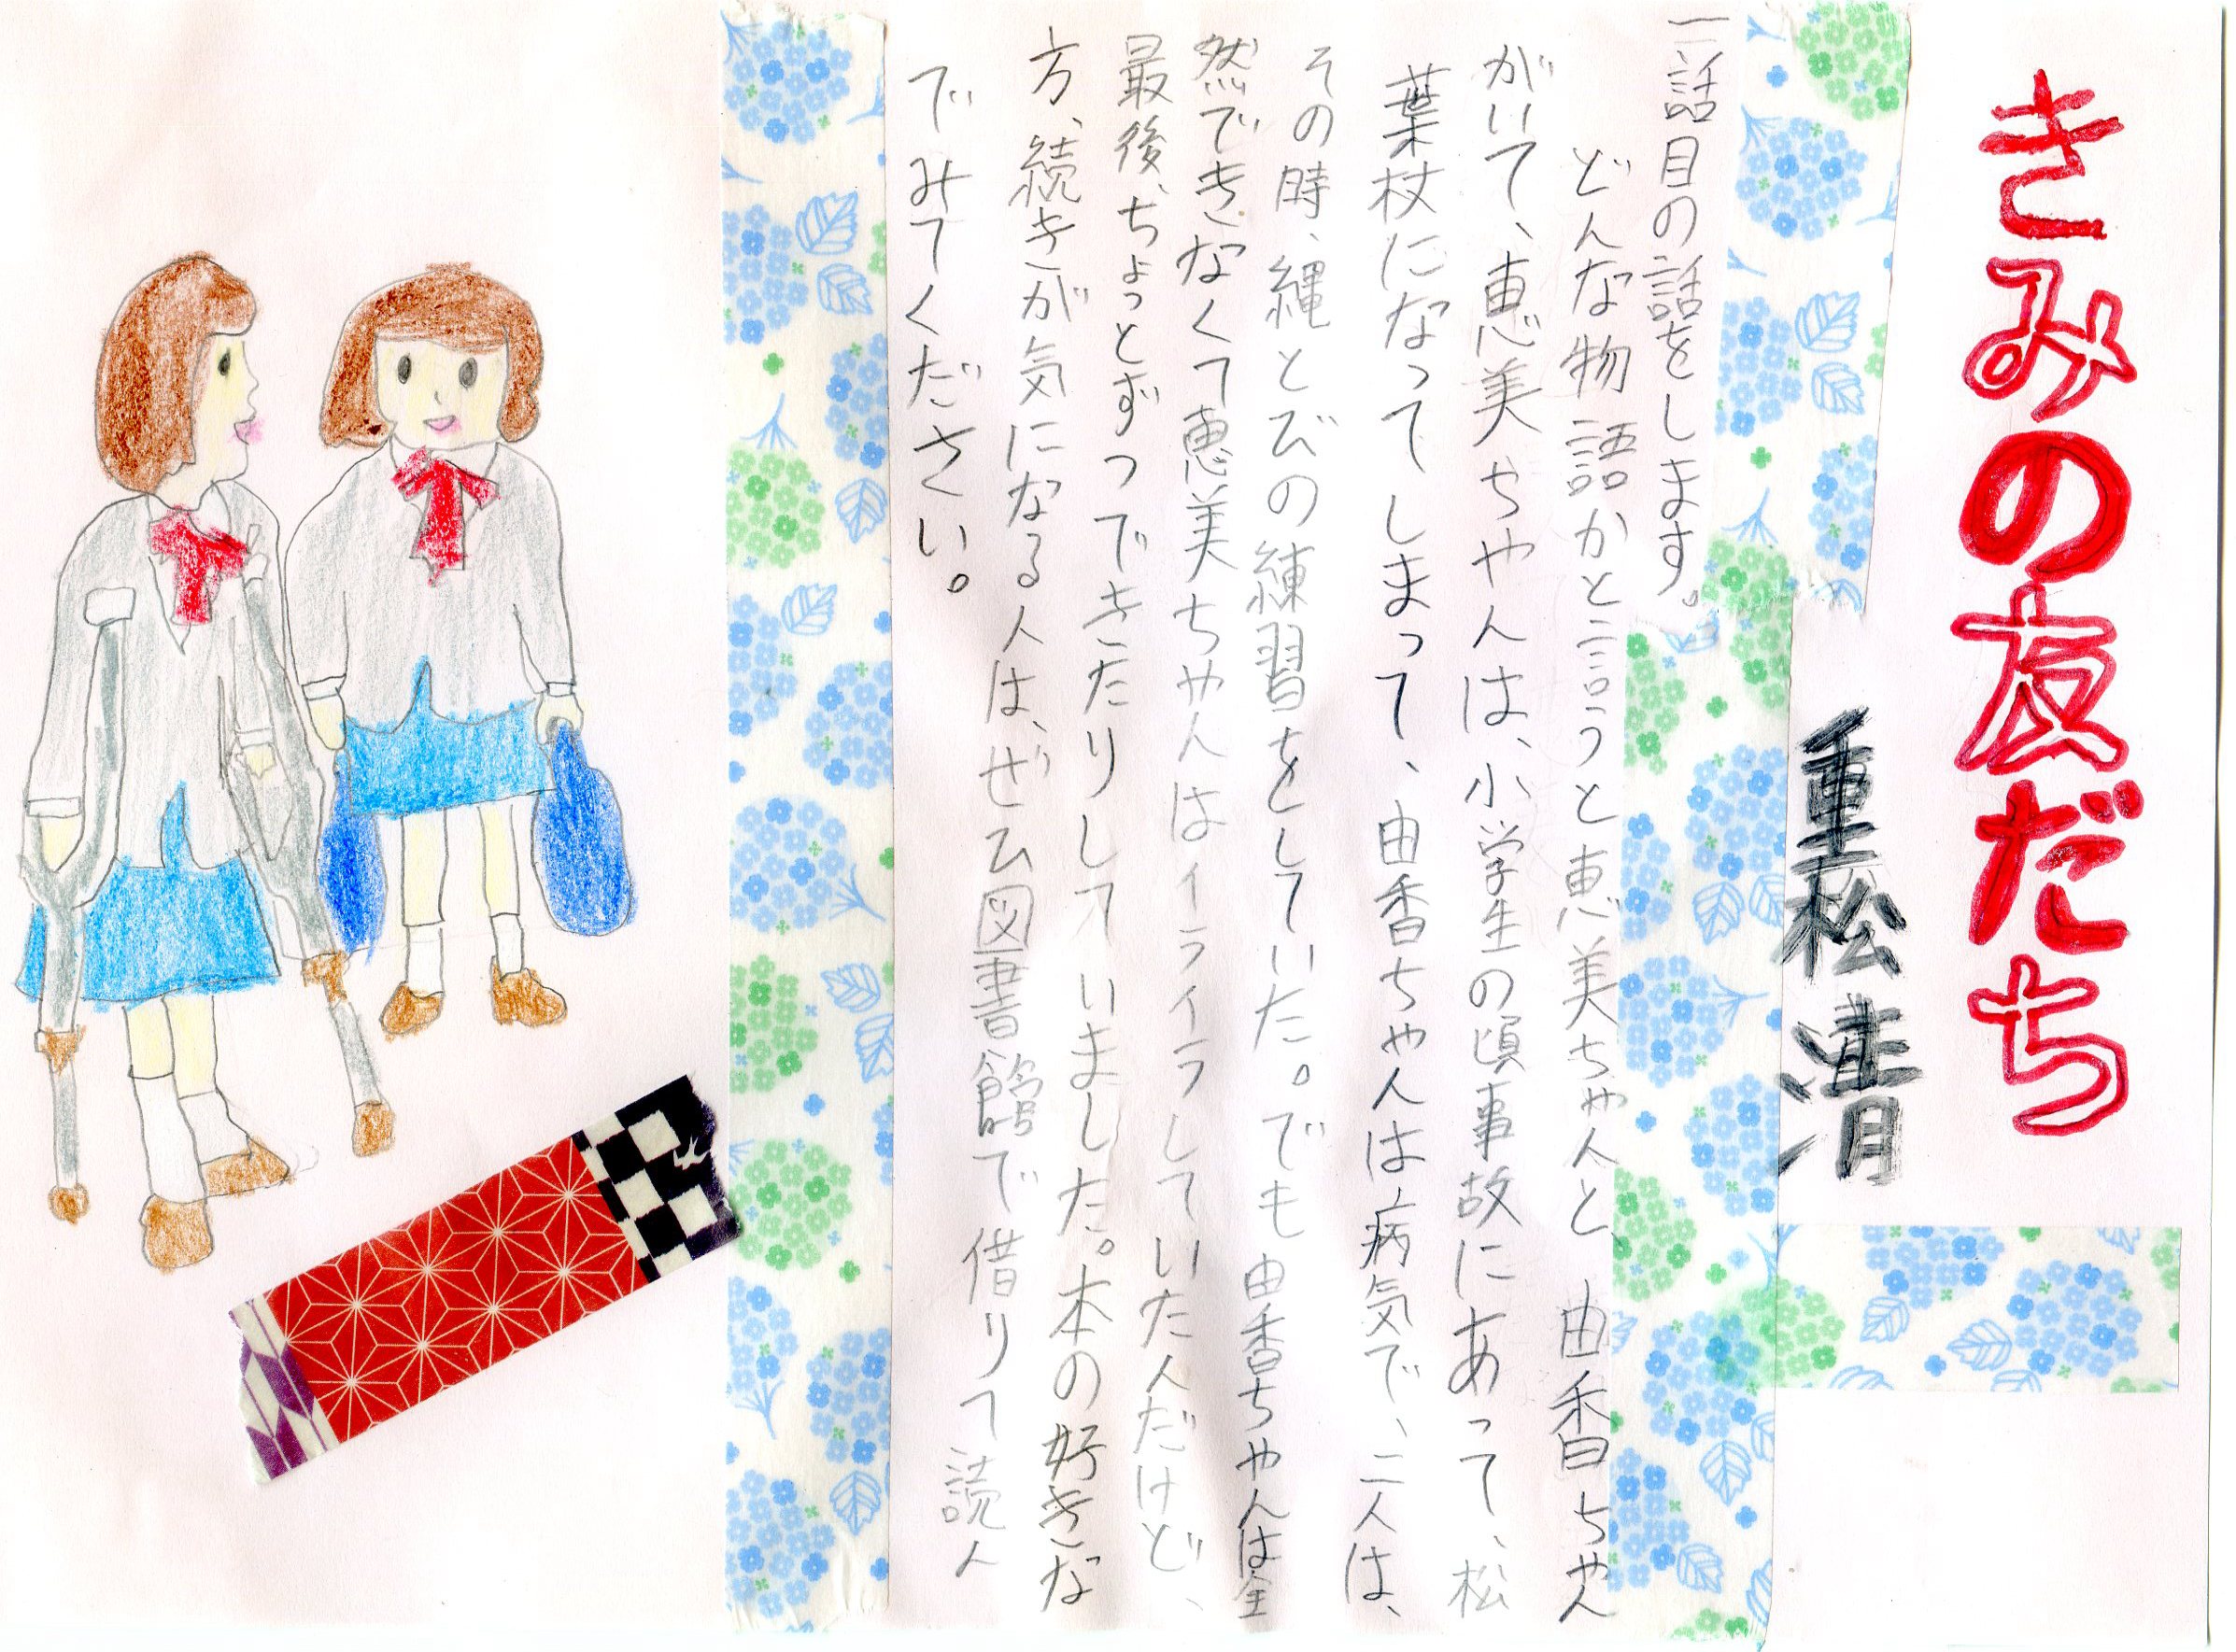 きみの友だち
重松清
一話目の話をします。
どんな物語かと言うと恵美ちゃんと、由香ちゃん
がいて、恵美ちゃんは、小学生の頃事故にあって、松
葉杖になってしまって、由香ちゃんは病気で、二人は、
その時、縄とびの練習をしていた。でも由香ちゃんは全
然できなくて恵美ちゃんはイライラしていたんだけど、
最後、ちょっとずつできたりしていました。本の好きな
方、続きが気になる人は、ぜひ図書館で借りて読ん
でみてください。